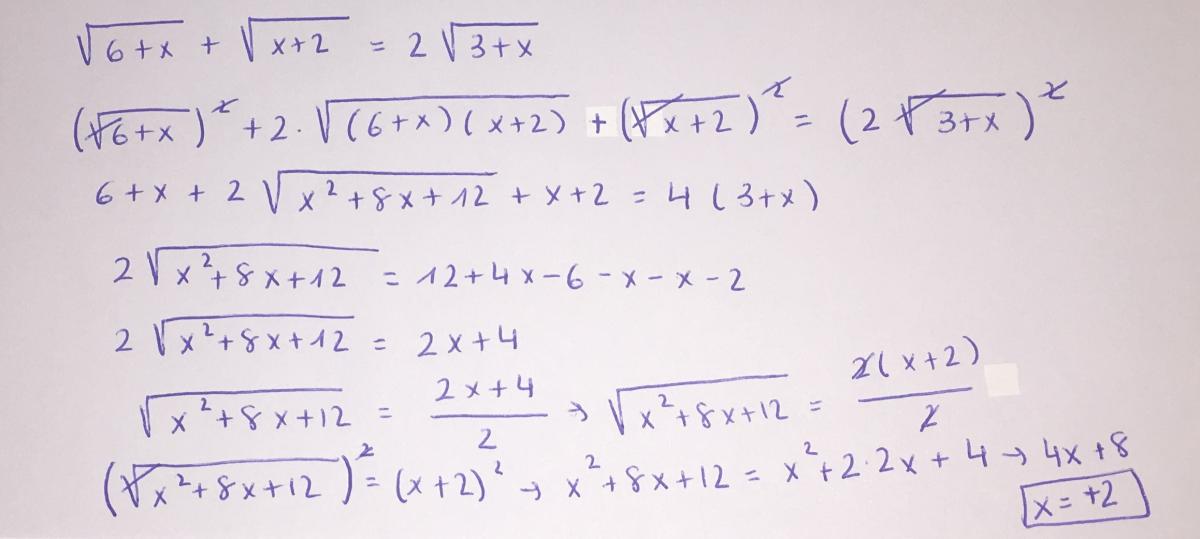 √(6+x) + √(x+2) = 2√(3+x)
(√(6+x))² + 2·√((6+x)(x+2)) + (√(x+2))² = (2√(3+x))²
6+x + 2√(x²+8x+12) + x+2 = 4(3+x)
2√(x²+8x+12) = 12+4x-6-x-x-2
2√(x²+8x+12) = 2x+4
√(x²+8x+12) = (2x+4)/2 → √(x²+8x+12) = 2(x+2)/2
(√(x²+8x+12))² = (x+2)² → x²+8x+12 = x²+2·2x+4 → 4x+8
x = +2